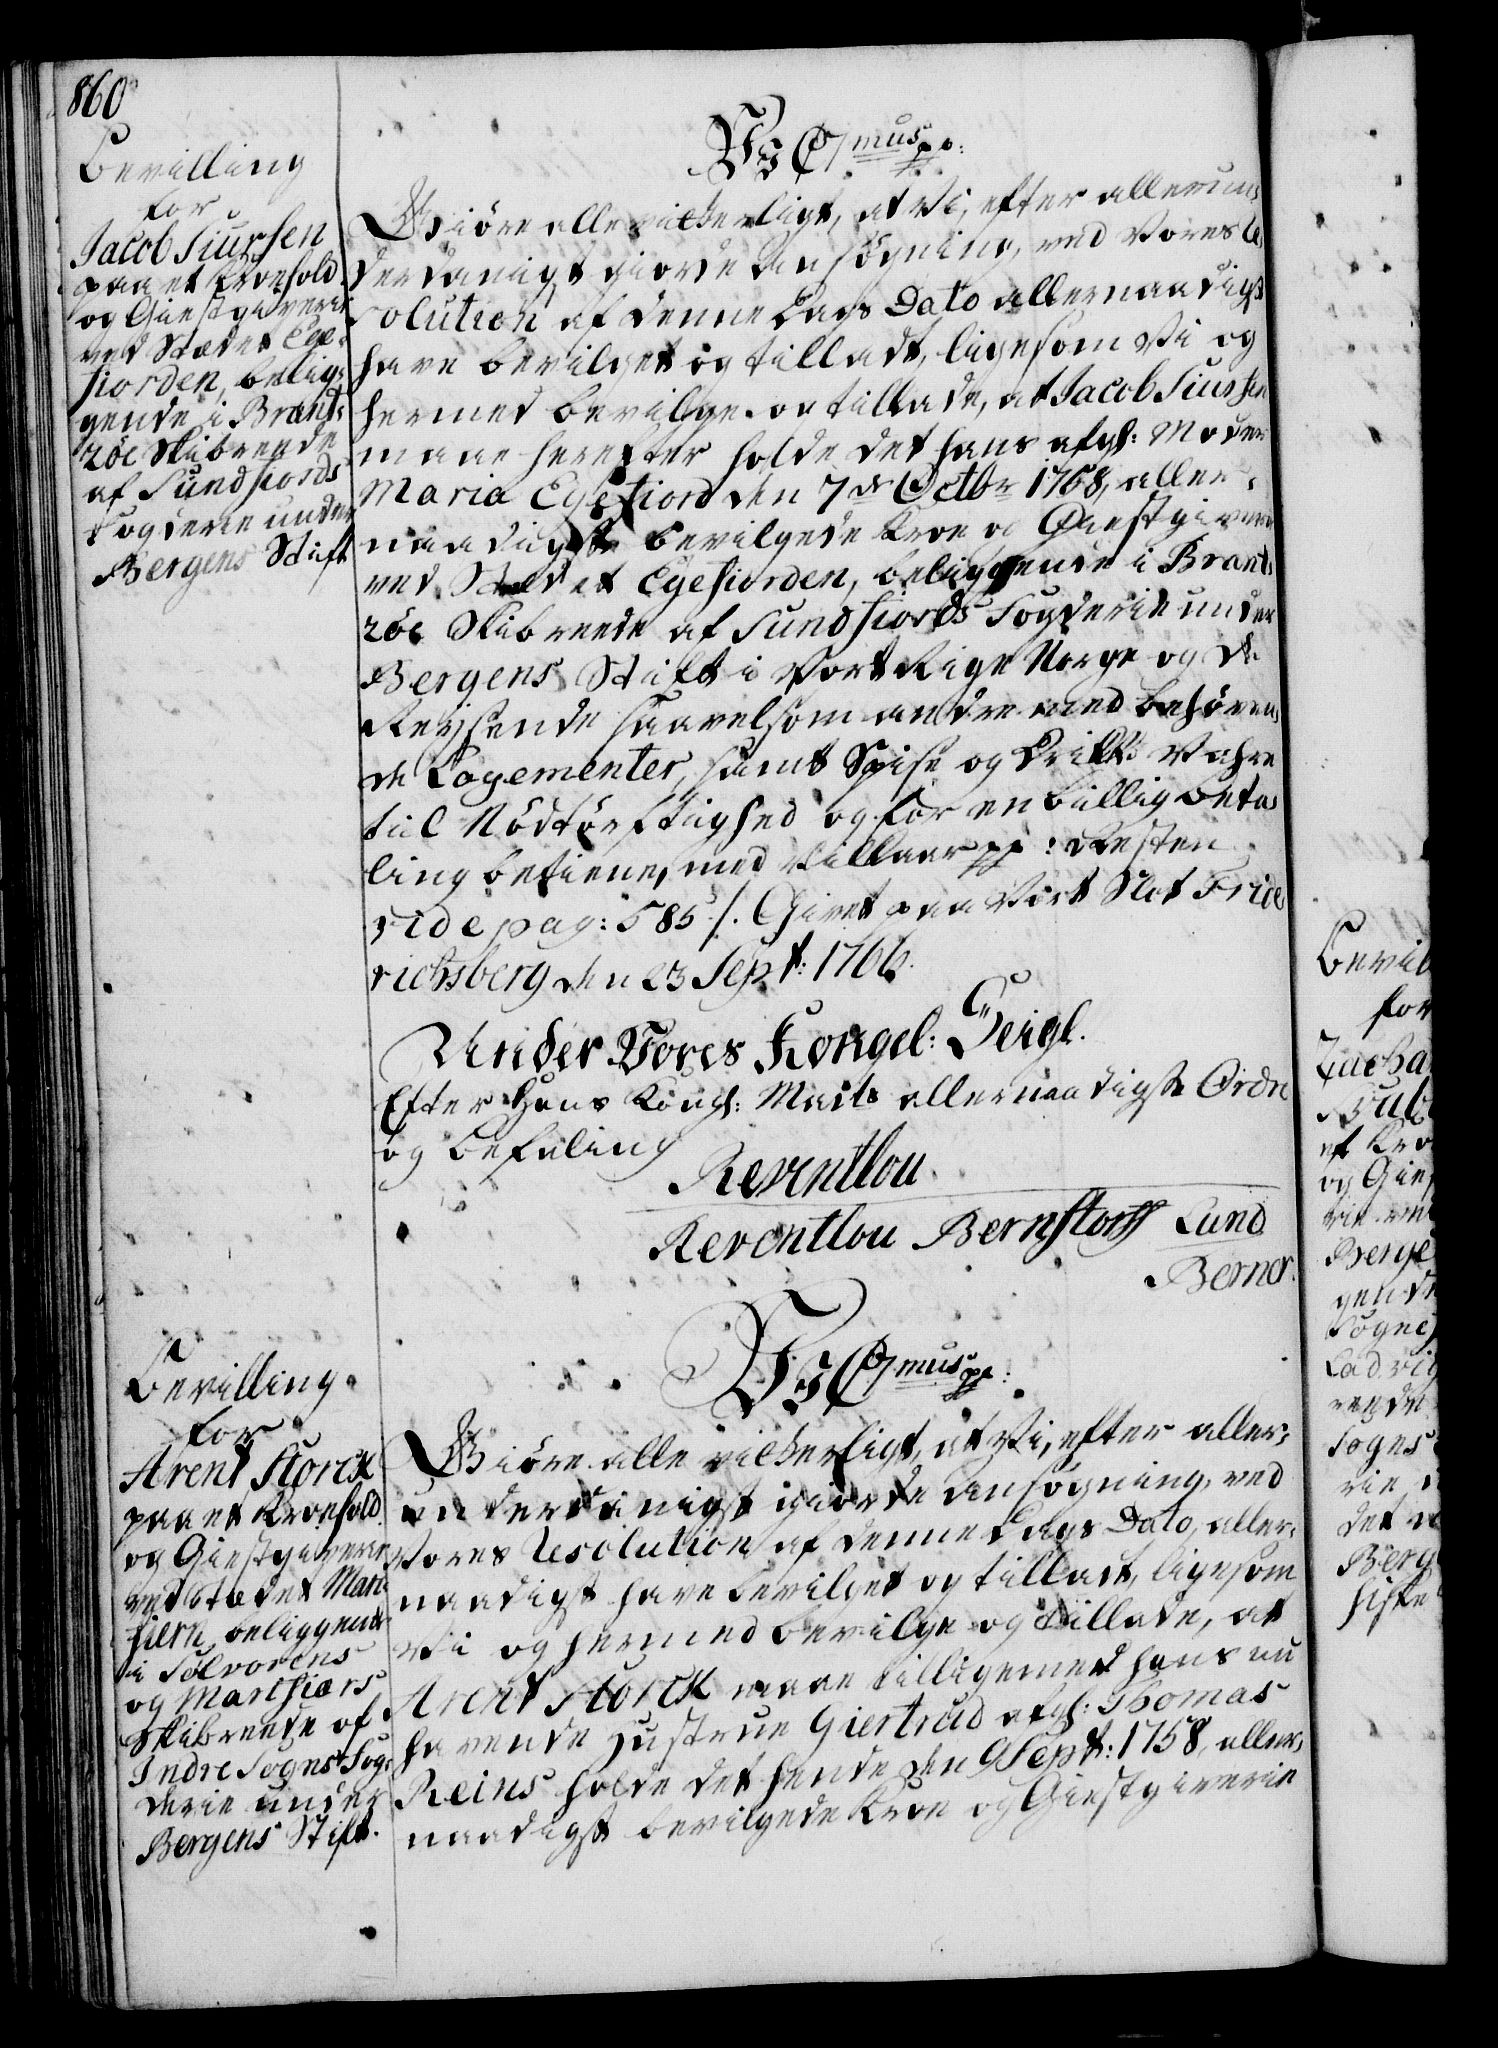 860
Bevilling
for
Jacob Siursen
paa et Kroehold
og Giestgiverie
ved Stædet Ege-
fiorden, belig-
gende i Brand-
zöe Skibrede
af Sundfiords
Fogderie under
Bergens Stift
Vy C7mus pp:
Giöre alle vitterligt, at Vi, efter allerun-
derdanigst giorde Ansögning, ved Vores Re-
solution af denne Dags Dato allernaadigst
have bevilget og tilladt, ligesom Vi og
hermed bevilge og tillade, at Jacob Siursen
maae herefter holde det hans afgl: Moder
Maria Egefiord den 7de Octbr 1768, aller-
naadigst bevilgede Kroe og Giestgiverie
ved Stædet Egefiorden, beliggende i Brand-
zöe Skibrede af Sundfiords Fogderie under
Bergens Stift i Vort Rige Norge og de
Reysende saavelsom andre med behöven-
de Logementer, samt Spise og Drikke Vahre
til Nödtörftighed og for en billig beta-
ling betiene, med Villkaar pp: Resten
vide pag: 585 /. Givet paa Vort Slot Fride
richsberg den 23 Sept: 1766.
Under Vores Kongel: Seigl.
Efter Hans Kongl: Mait allernaadigste Ordre
og Befaling
Reventlou
Reventlou Bernstorff Lund
Berner.
Bevilling
for
Arent Storck
paa et Kroehold
og Giestgiverie
ved Stædet Mari
fiern, beliggende
i Solvorens
og Marifiærs
Skibrede af
Indre Sogns Fog-
derie under
Bergens Stift.
Vy C7mus pp:
Giöre alle vitterligt, at Vi, efter aller-
underdanigst giorde Ansögning, ved
Vores Resolution af denne Dags Dato, aller-
naadigst have bevilget og tilladt, ligesom
Vi og hermed bevilge og tillade, at
Arent Storck maae tilligemed hans nu
havende Hustrue Giertrud afgl: Thomas
Reins holde det hende den 9 Sept: 1758, aller-
naadigst bevilgede Kroe og Giestgiverie
Bevil
for
et Kro
og Gies
Berge
gende
Sogne
Ladvig
rende
Sogns
rie
det
Berg